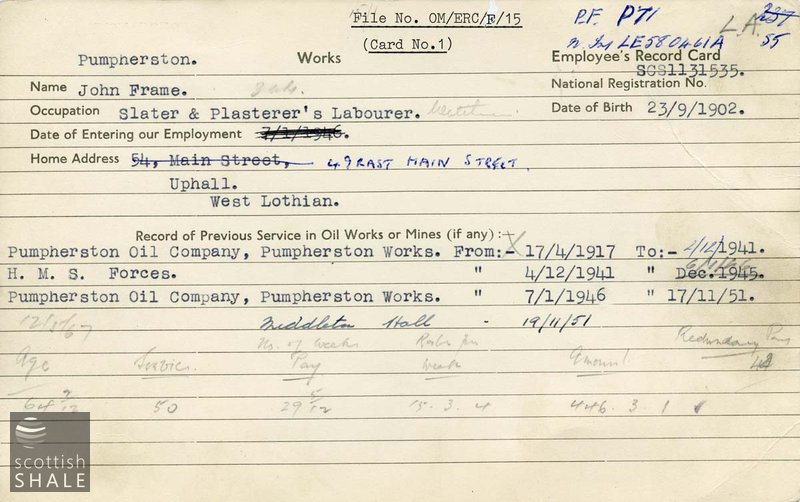 File No. OM/ERC/F/15
P.F. PT1
L.A. 237
(Card No.1)
LE580461A
55
Pumpherston. Works Employee's Record Card
SCS1131535.
Name John Frame. National Registration No.
Occupation Slater & Plasterer's Labourer. Date of Birth 23/9/1902.
Date of Entering our Employment 7/1/1946.
Home Address 54, Main Street, 49 EAST MAIN STREET.
Uphall.
West Lothian.
Record of Previous Service in Oil Works or Mines (if any):-
Pumpherston Oil Company, Pumpherston Works. From:- 17/4/1917 To:- 4/12/1941.
H. M. S. Forces. " 4/12/1941 " Dec. 1945.
Pumpherston Oil Company, Pumpherston Works. " 7/1/1946 " 17/11/51.
12/5/67 Middleton Hall - 19/11/51
Redundancy Pay
No. of weeks
Age Service Pay weeks Amount
64 7/12 50 29 5/12 15. 3. 4 446. 3. 1
scottish
SHALE